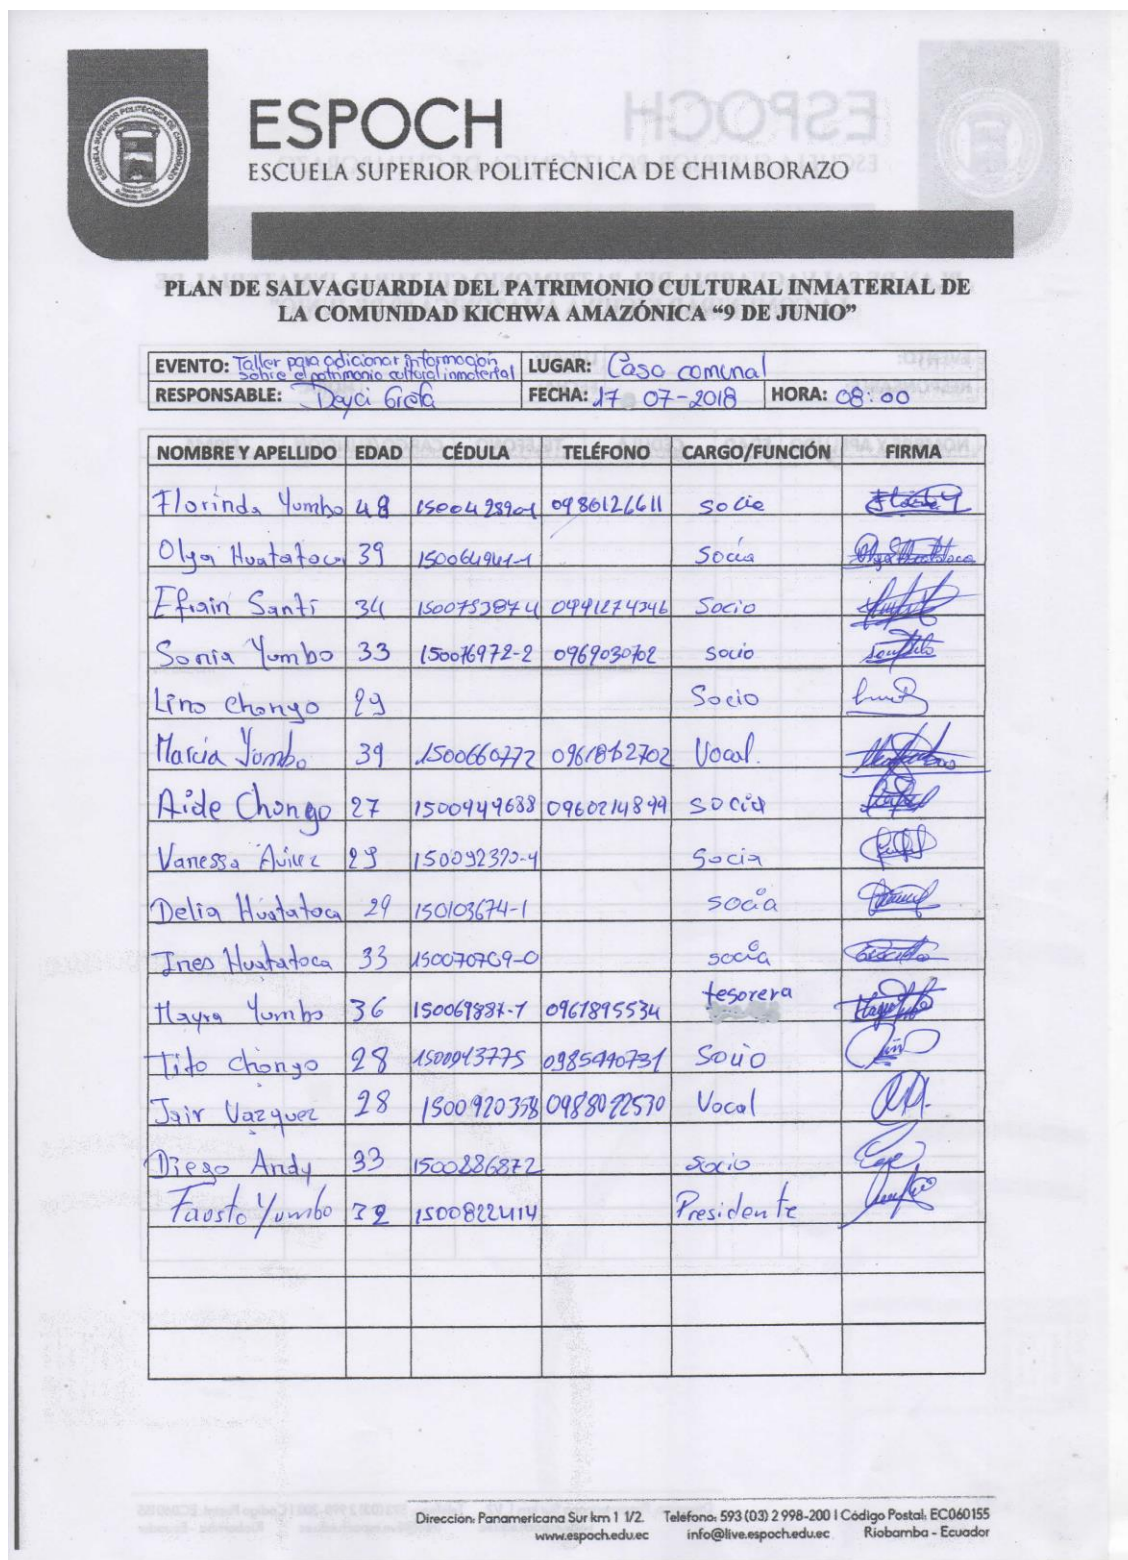 ESPOCH
ESCUELA SUPERIOR POLITÉCNICA DE CHIMBORAZO
PLAN DE SALVAGUARDIA DEL PATRIMONIO CULTURAL INMATERIAL DE
LA COMUNIDAD KICHWA AMAZÓNICA “9 DE JUNIO”
EVENTO: Taller para adicionar información sobre el patrimonio cultural inmaterial LUGAR: Casa comunal
RESPONSABLE: Deyci FECHA: 17 07-2018 HORA: 08:00
NOMBRE Y APELLIDO EDAD CÉDULA TELÉFONO CARGO/FUNCIÓN FIRMA
Florinda Yumbo 48 0980126611 socia
Olga Huatatoca 39 150064941-1 Socia
Efrain Santi 34 1500753874 Socio
Sonia Yumbo 33 150076972-2 0969030702 socio
Lino Chongo 29 Socio
Marcia Yumbo 39 1500660772 0961862702 Vocal.
Aide Chongo 27 1500949688 0960214899 socia
Vanessa 29 150092370-4 Socia
Delia Huatatoca 29 150103674-1 socia
Ines Huatatoca 33 150070709-0 socia
Mayra Yumbo 36 150069887-7 0967895534 tesorera
Tito Chongo 28 1500913775 0985990731 Socio
Jair Vazquez 28 1500920358 0988022530 Vocal
Diego Andy 33 1500886872 socio
Fausto Yumbo 32 1500822414 Presidente
Dirección: Panamericana Sur km 1 1/2. Teléfono: 593 (03) 2 998-200 | Código Postal: EC060155
www.espoch.edu.ec info@live.espoch.edu.ec Riobamba - Ecuador